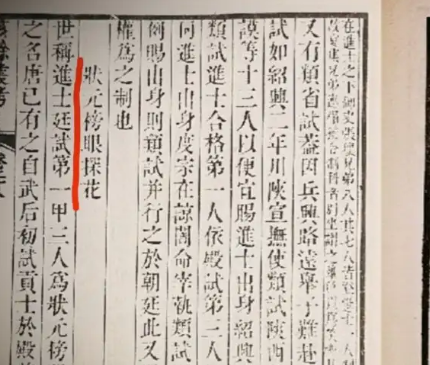 在進士之下
又有類省試蓋因兵興路遠舉子難赴
試如紹興二年川陝宣撫使類試陝西
謨等十三人以便宜賜進士出身紹興
類試進士合格第一人依殿試第三人
同進士出身度宗在諒闇命宰執類試
例賜出身則類試并行之於朝廷此又
權爲之制也
狀元榜眼探花
世稱進士廷試第一甲三人爲狀元榜
之名唐已有之自武后初試貢士於殿
餘叢考